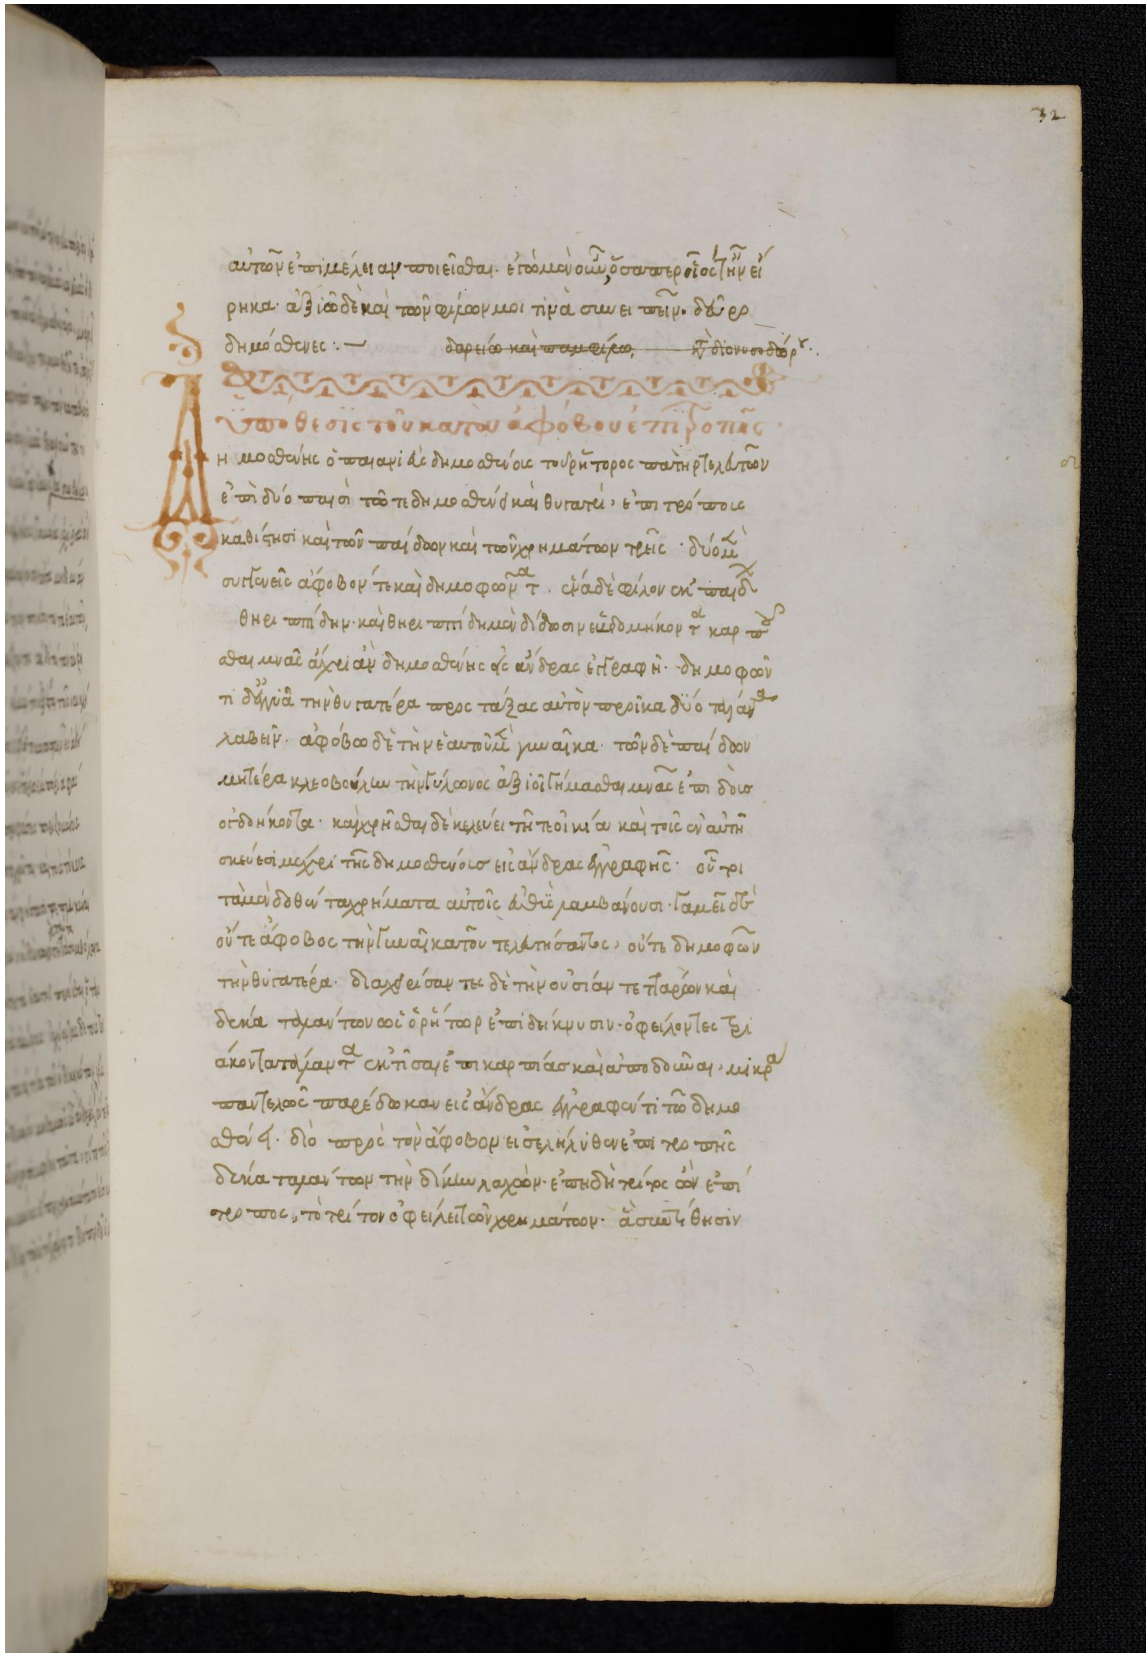 32
αὐτῶν ἐπιμέλειαν ποιεῖσθαι. ἐγὼ μὲν οὖν, ὅσαπερ οἷός τ' ἦν εἴ
ρηκα. ἀξιῶ δὲ καὶ τῶν φίλων μοι τινὰ συνειπεῖν. δεῦρο
δημόσθενες :— δαρείῳ καὶ παμφίλῳ, κτ̀ διονυσοδώρου.
ὑπόθεσις τοῦ κατὰ ἀφόβου ἐπιτροπῆς
Δημοσθένης ὁ παιανιεὺς δημοσθένους τοῦ ῥήτορος πατὴρ τελευτῶν
ἐπὶ δύο παισὶ τῶ τε δημοσθένει καὶ θυγατεὶ, ἐπιτρόπους
καθίστησι καὶ τῶν παίδων καὶ τῶν χρημάτων τρεῖς. δύο μὲν
συγγενεῖς ἄφοβόν τε καὶ δημοφῶντα. ἕνα δὲ φίλον ἐκ παιδὸς
θηριππίδην. καὶ θηριππίδη μὲν δίδωσιν ἑβδομήκοντα καρποῦ
σθαι μνᾶς ἄχρι ἂν δημοσθένης εἰς ἄνδρας ἐγγραφῆ. δημοφῶν
τι δὲ γυναῖκα τὴν θυγατέρα προστάξας αὐτὸν προῖκα δύο τάλαντα
λαβεῖν. ἀφόβω δὲ τὴν ἑαυτοῦ μὲν γυναῖκα. τῶν δὲ παίδων
μητέρα κλεοβούλην τὴν γύλωνος ἀξιοῖ γήμασθαι μνᾶς ἐπιδοὺς
ὀγδοήκοντα. καὶ χρῆσθαι δὲ κελεύει τῆ τε οἰκία καὶ τοῖς ἐν αὐτῆ
σκεύεσι μέχρι τῆς δημοσθένους εἰς ἄνδρας ἐγγραφῆς. οὗτοι
τὰ μὲν δοθέντα χρήματα αὐτοῖς εὐθὺς λαμβάνουσι. γαμεῖ δὲ
οὔτε ἄφοβος τὴν γυναῖκα τοῦ τελευτήσαντος, οὔτε δημοφῶν
τὴν θυγατέρα. διαχειρίσαντες δὲ τὴν οὐσίαν τεττάρων καὶ
δέκα ταλάντων ὡς ὁ ῥήτωρ ἐπιδείκνυσιν. ὀφείλοντες τρι
άκοντα τάλαντα ἐκτῖσαι ἐπικαρπίας καὶ ἀποδοῦναι, μικρὰ
παντελῶς παρέδωκαν εἰς ἄνδρας ἐγγραφέντι τῶ δημο
σθένει. διὸ πρὸς τὸν ἄφοβον εἰσελήλυθεν ἐπιτροπῆς
δέκα ταλάντων τὴν δίκην λαχών. ἐπειδὴ τρίτος ὢν ἐπί
τροπος, τὸ τρίτον ὀφείλει τῶν χρημάτων. ἃ συντίθησιν